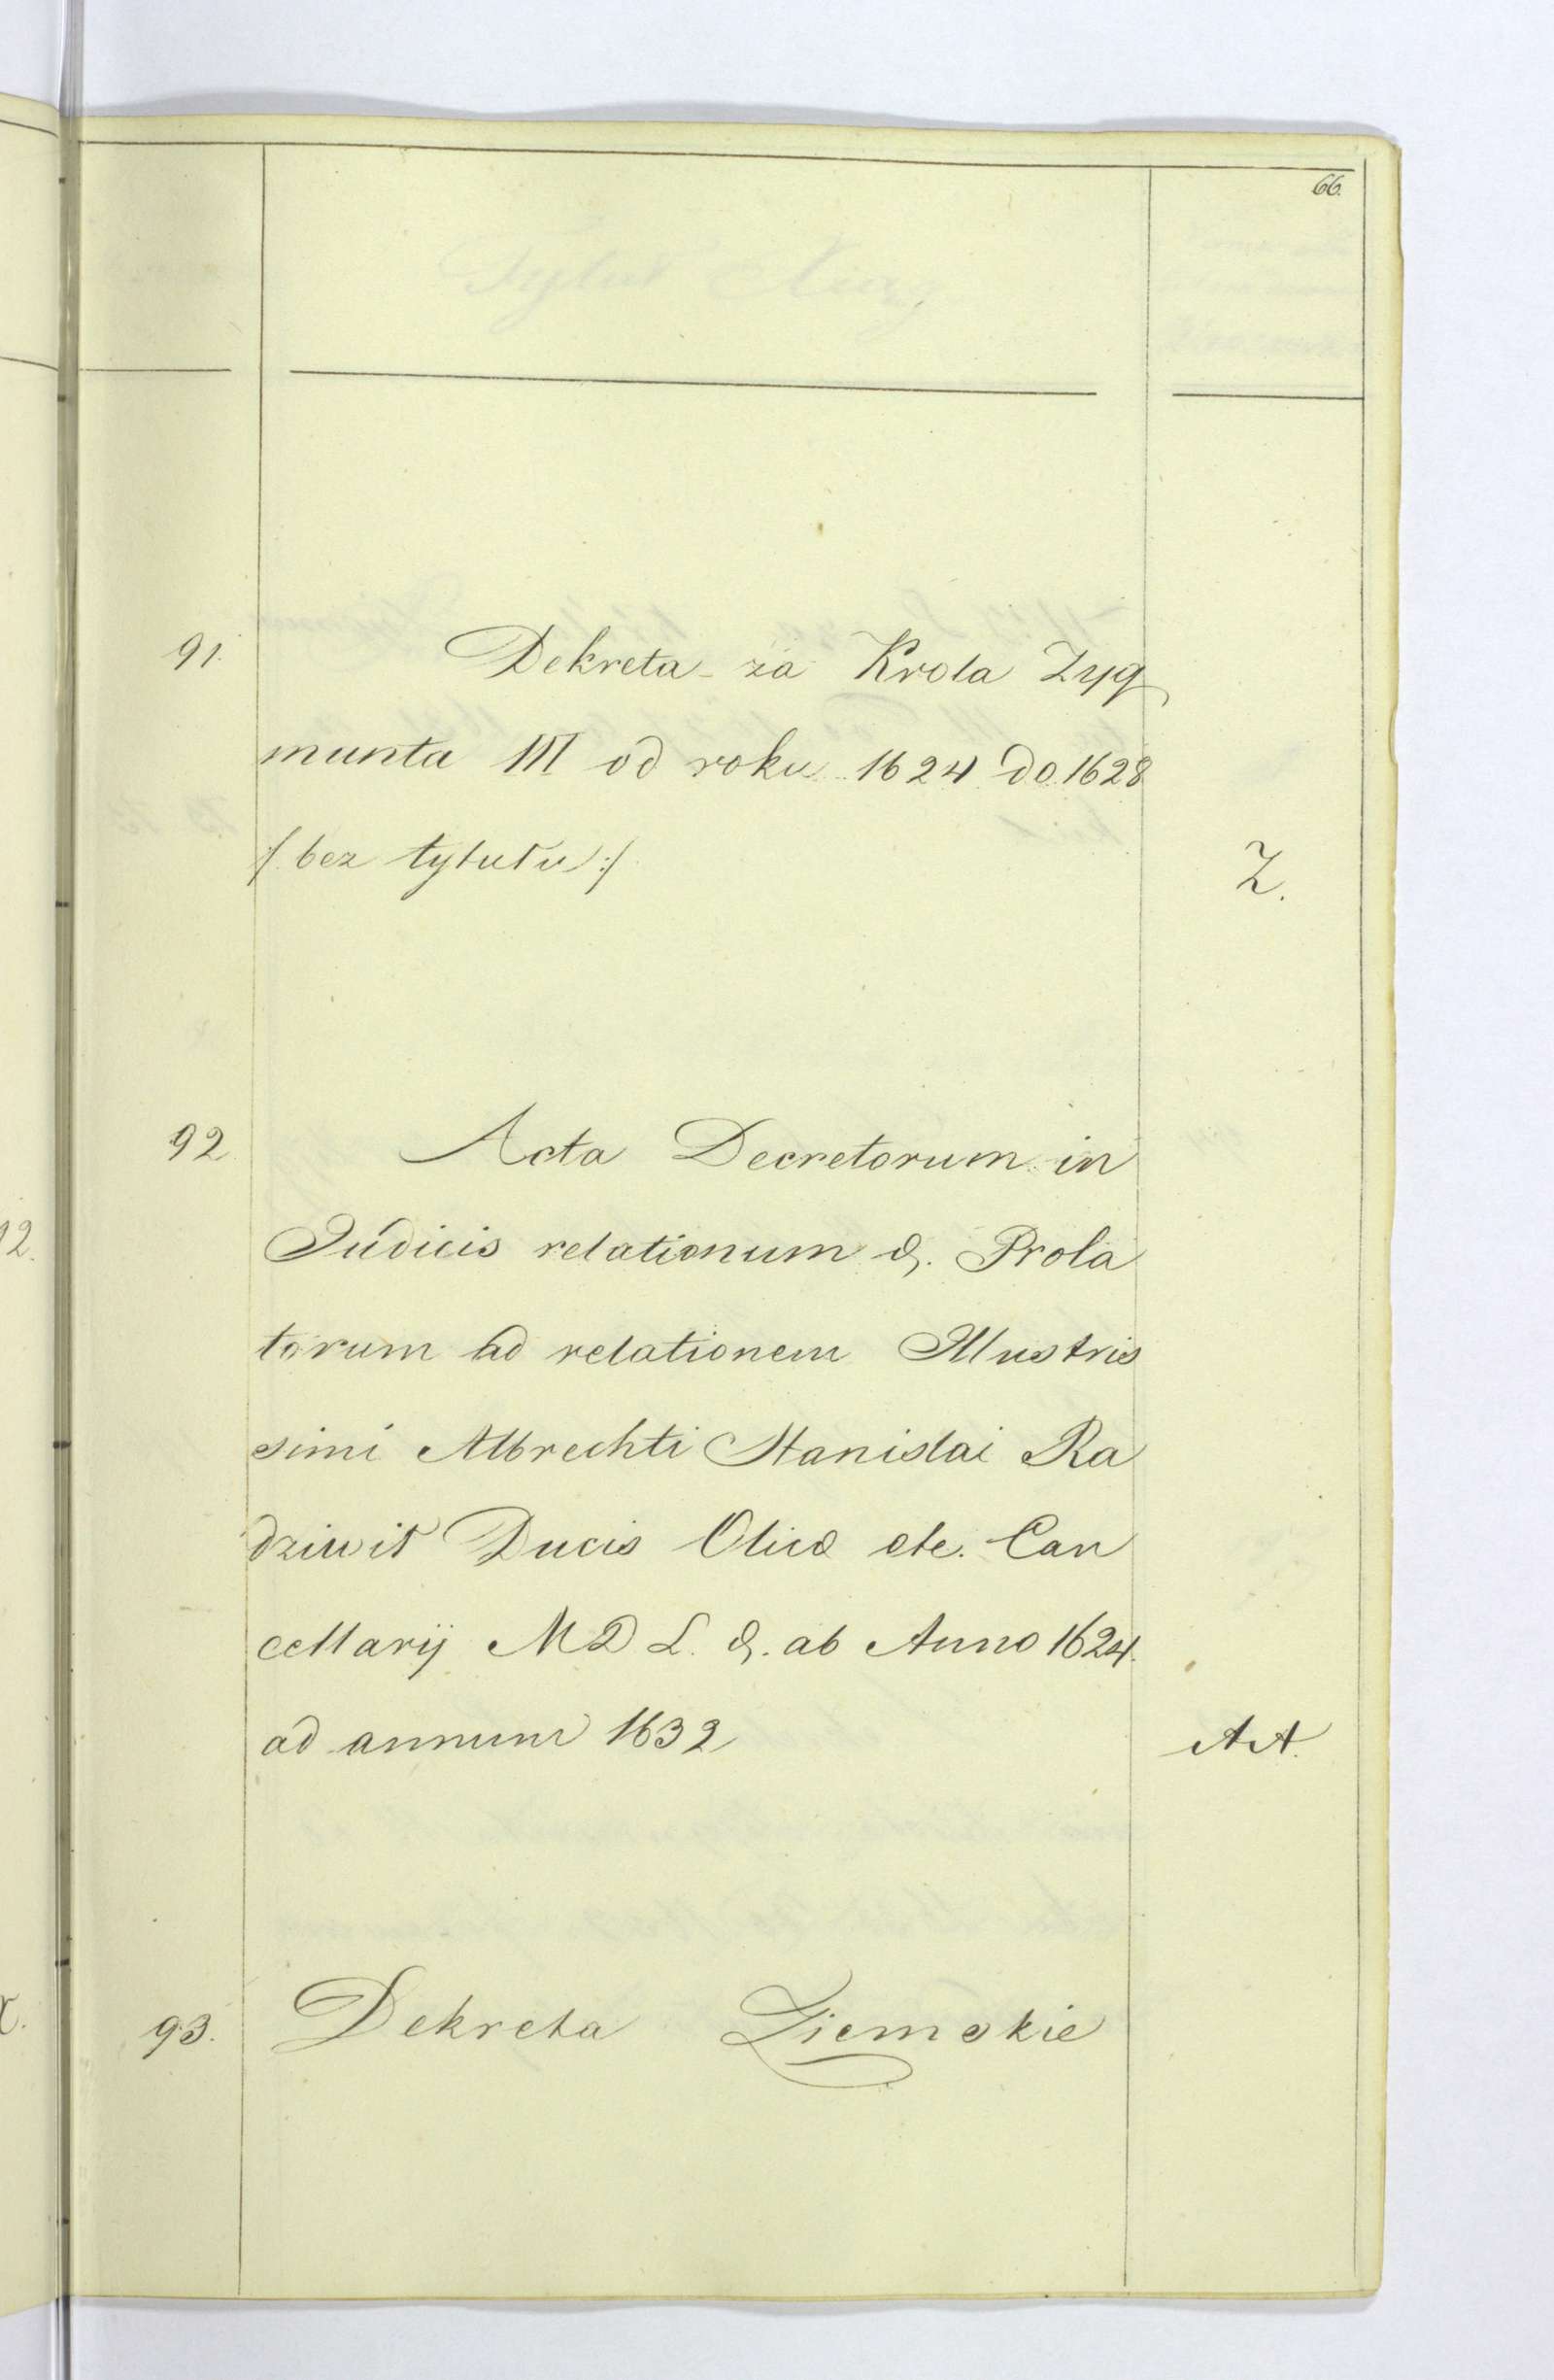 66.
91. Dekreta za Krola Zyg
munta III od roku 1624 do 1628
/: bez tytułu :/ Z.
92 Acta Decretorum in
Judicis relationum &. Prola
torum ad relationem Illustris
simi Albrechti Stanislai Ra
dziwił Ducis Olicae etc. Can
cellarij M D L. &. ab Anno 1624.
ad annum 1632 AA.
93. Dekreta Ziemskie